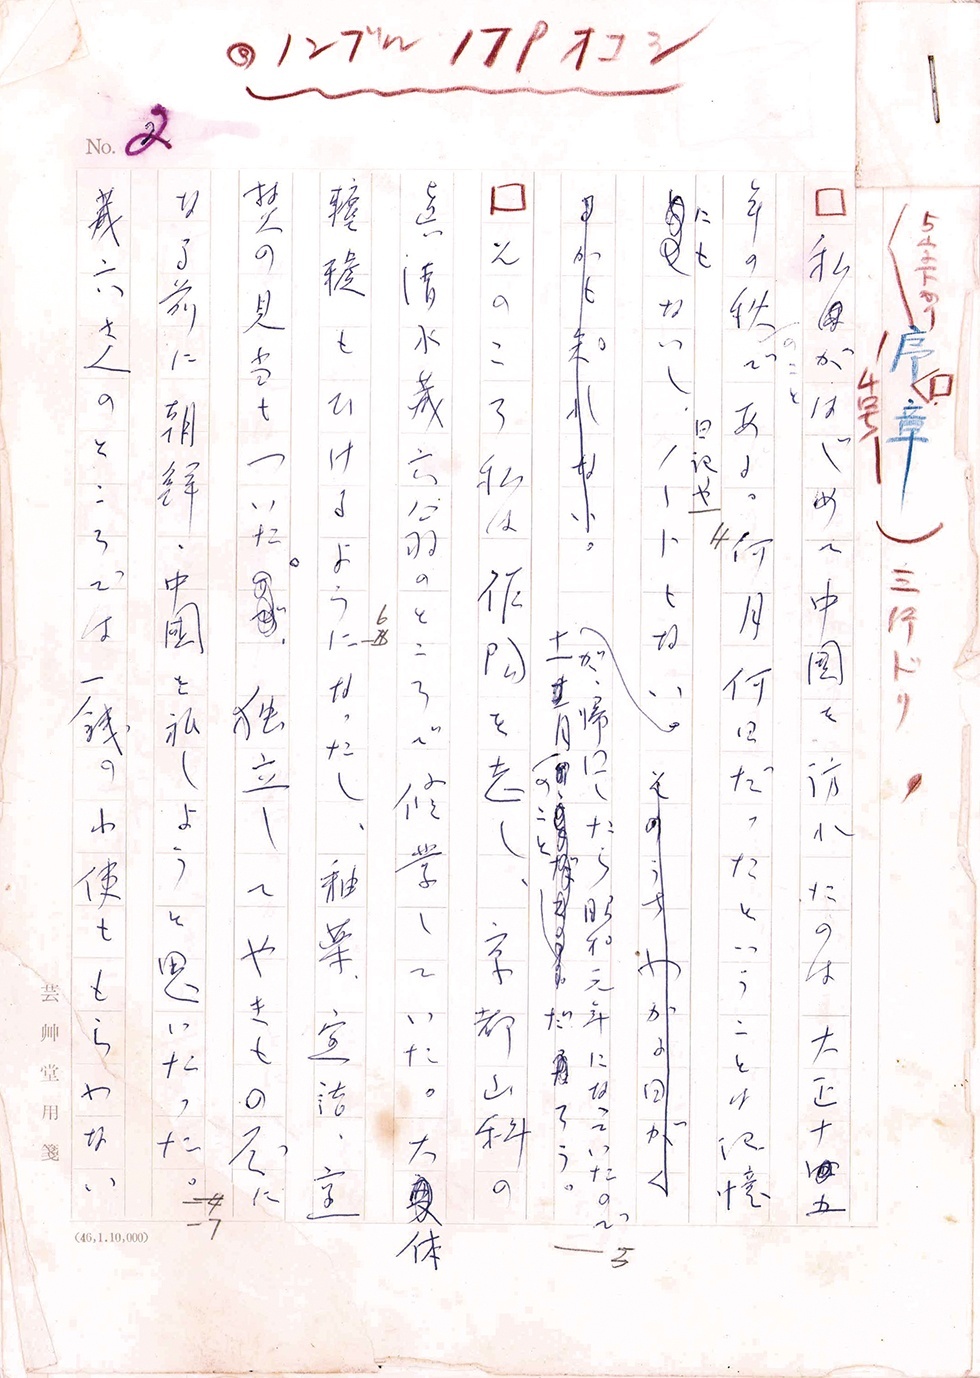 ノンブル 17P オコシ
No. 2
5字下ガリ
序章
4号
三行ドリ
私がはじめて中国を訪れたのは大正十五
年の秋のことである。何月何日だったということは記憶
にもないし、日記やノートもない。そのうちわかる日がく
るかも知れない。
が、帰国したら昭和元年になっていたので
十一月のことだろう。
そのころ私は作陶を志し、京都山科の
真清水蔵六翁のところで修学していた。大体
轆轤もひけるようになったし、釉薬、窯詰、窯
焚の見当もついた。独立してやきもの屋に
なる前に朝鮮、中国を私しようと思いたった。
蔵六さんのところでは一銭の小使ももらわない
4
5
6
7
芸艸堂用箋
(46,1.10,000)